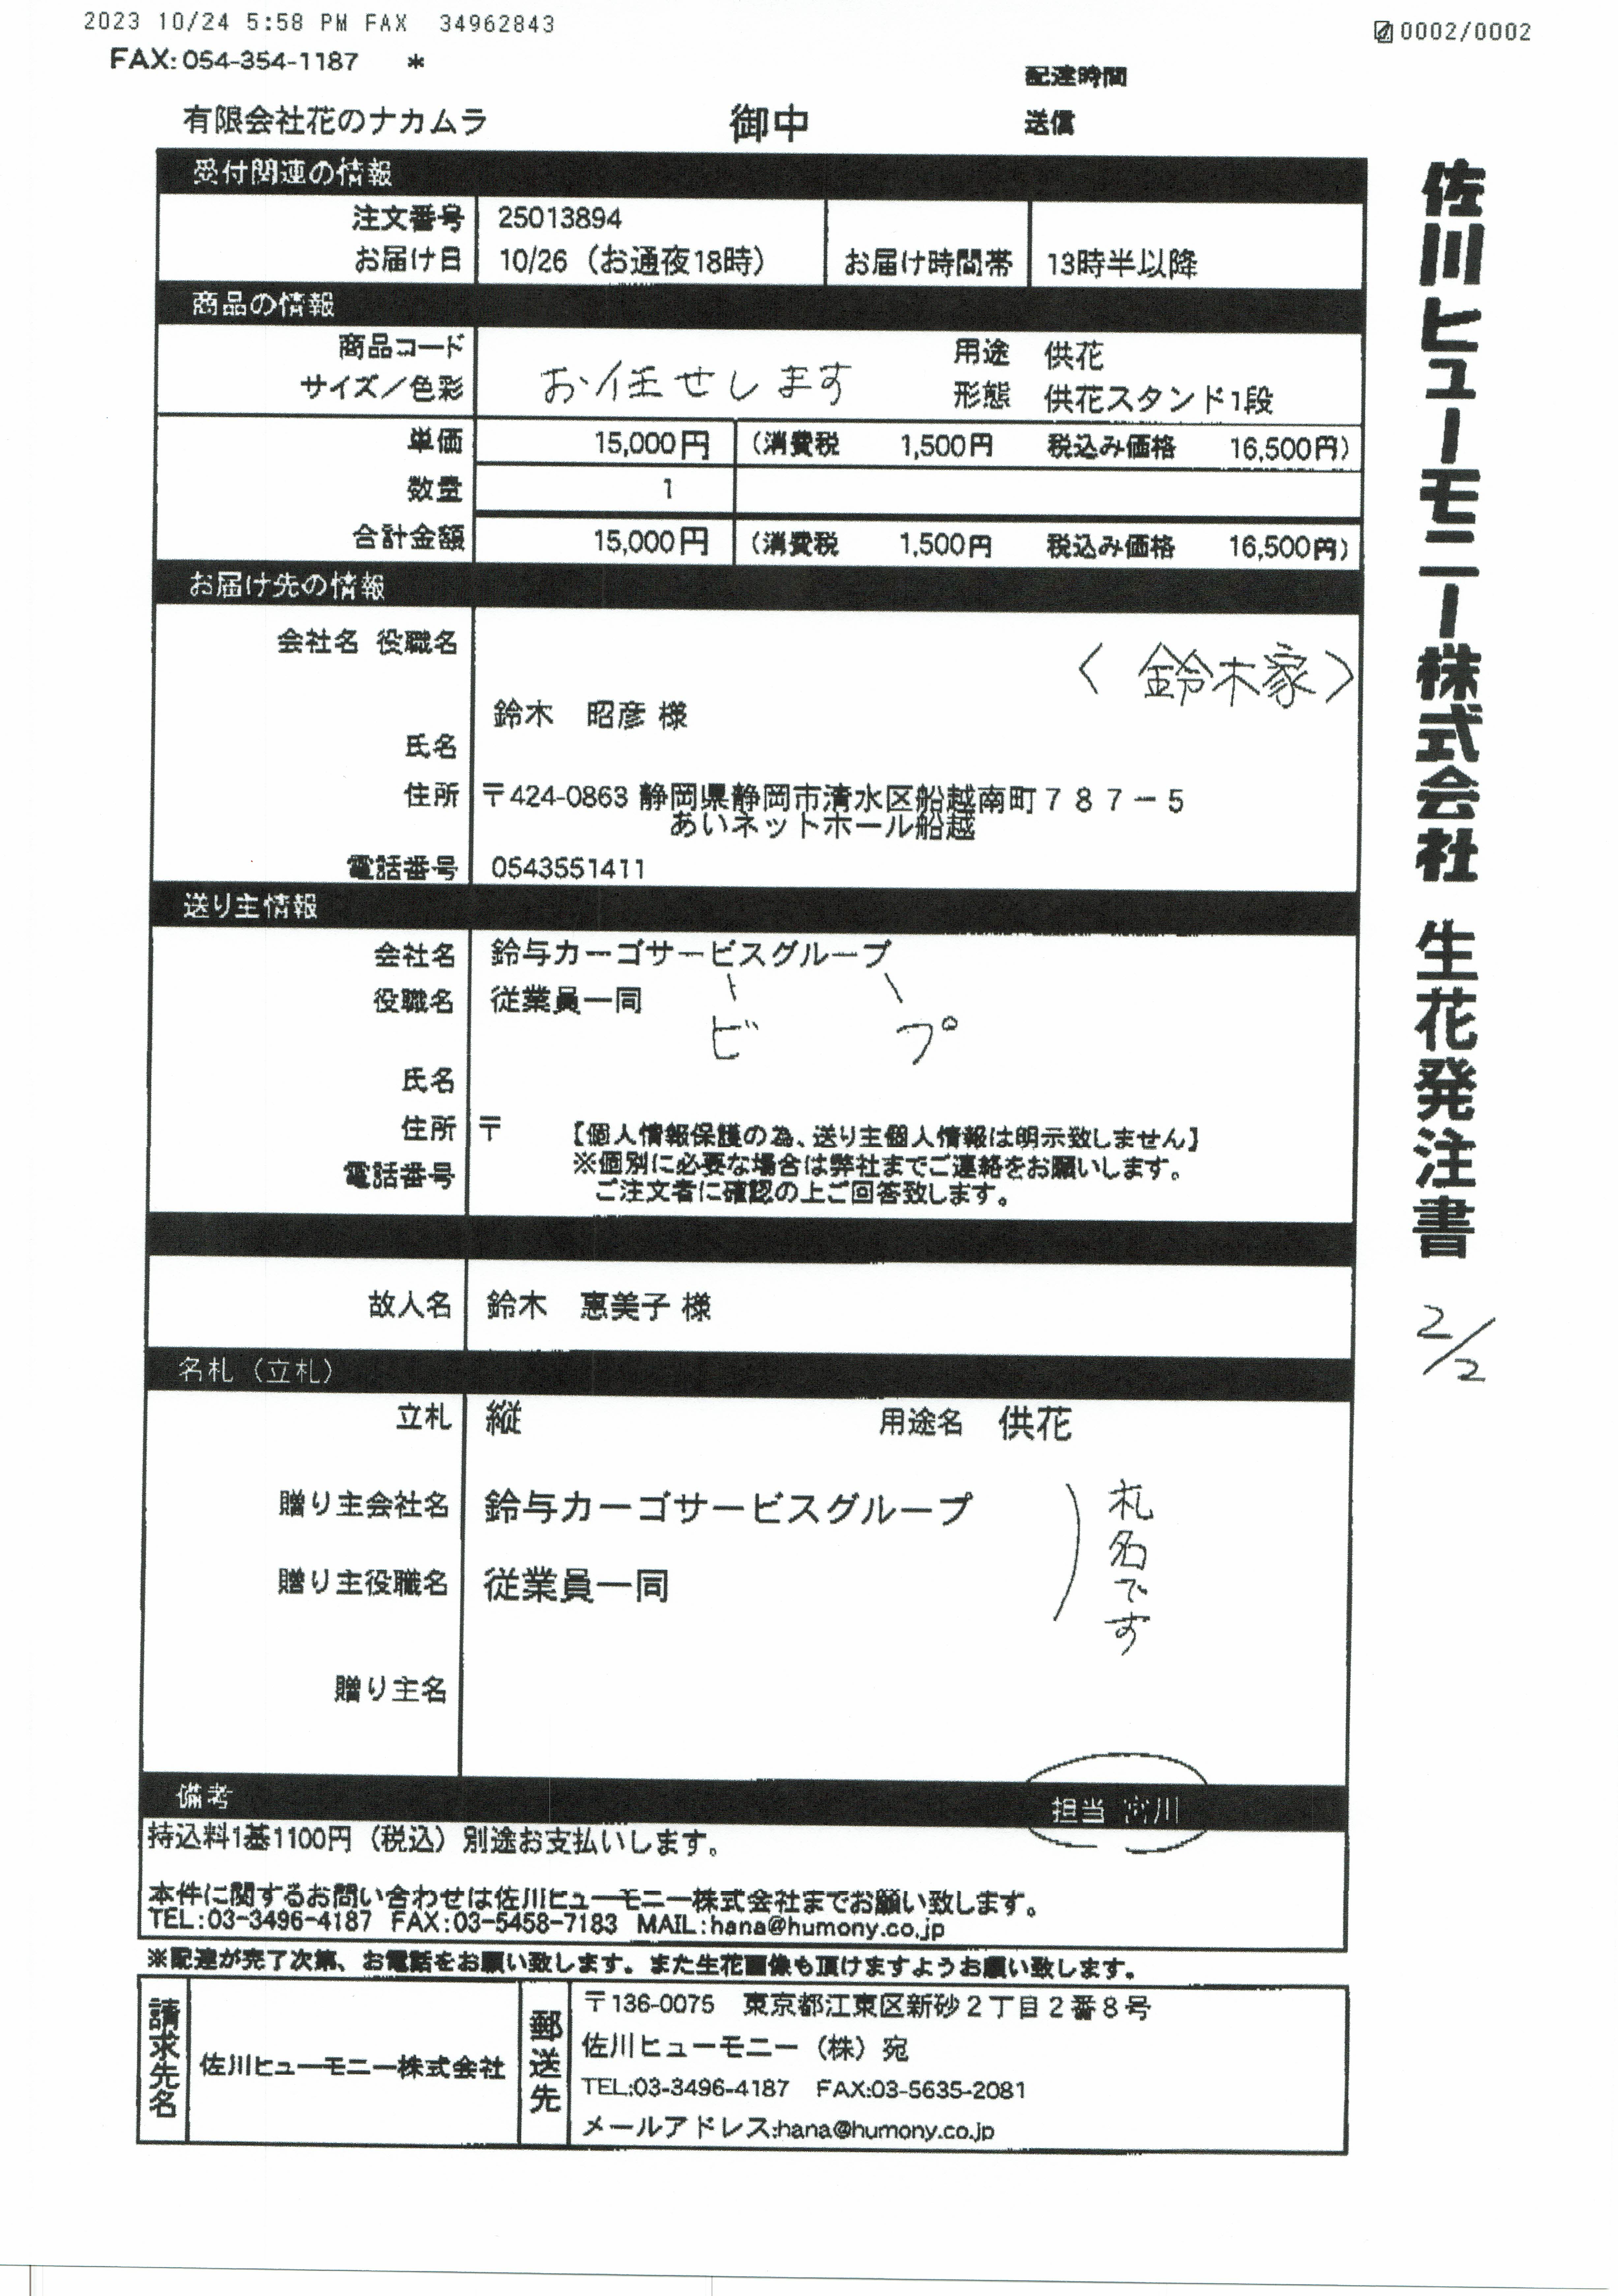 2023 10/24 5:58 PM FAX 34962843
0002/0002
FAX:054-354-1187 *
配達時間
有限会社花のナカムラ 御中
送信
佐川ヒューモニー株式会社 生花発注書
2/2
受付関連の情報
注文番号 25013894
お届け日 10/26（お通夜18時） お届け時間帯 13時半以降
商品の情報
商品コード 用途 供花
サイズ／色彩 お任せします 形態 供花スタンド1段
単価 15,000円 （消費税 1,500円 税込み価格 16,500円）
数量 1
合計金額 15,000円 （消費税 1,500円 税込み価格 16,500円）
お届け先の情報
会社名 役職名
〈 鈴木家 〉
鈴木 昭彦 様
氏名
住所 〒424-0863 静岡県静岡市清水区船越南町７８７－５
あいネットホール船越
電話番号 0543551411
送り主情報
会社名 鈴与カーゴサービスグループ
役職名 従業員一同
ビ プ
氏名
住所 〒 【個人情報保護の為、送り主個人情報は明示致しません】
※個別に必要な場合は弊社までご連絡をお願いします。
電話番号
ご注文者に確認の上ご回答致します。
故人名 鈴木 恵美子 様
名札（立札）
立札 縦 用途名 供花
贈り主会社名 鈴与カーゴサービスグループ
贈り主役職名 従業員一同
札名です
贈り主名
備考 担当 宮川
持込料1基1100円（税込）別途お支払いします。
本件に関するお問い合わせは佐川ヒューモニー株式会社までお願い致します。
TEL:03-3496-4187 FAX:03-5458-7183 MAIL:hana@humony.co.jp
※配達が完了次第、お電話をお願い致します。また生花画像も頂けますようお願い致します。
請求先名 佐川ヒューモニー株式会社 郵送先
〒136-0075 東京都江東区新砂２丁目２番８号
佐川ヒューモニー（株）宛
TEL:03-3496-4187 FAX:03-5635-2081
メールアドレス:hana@humony.co.jp